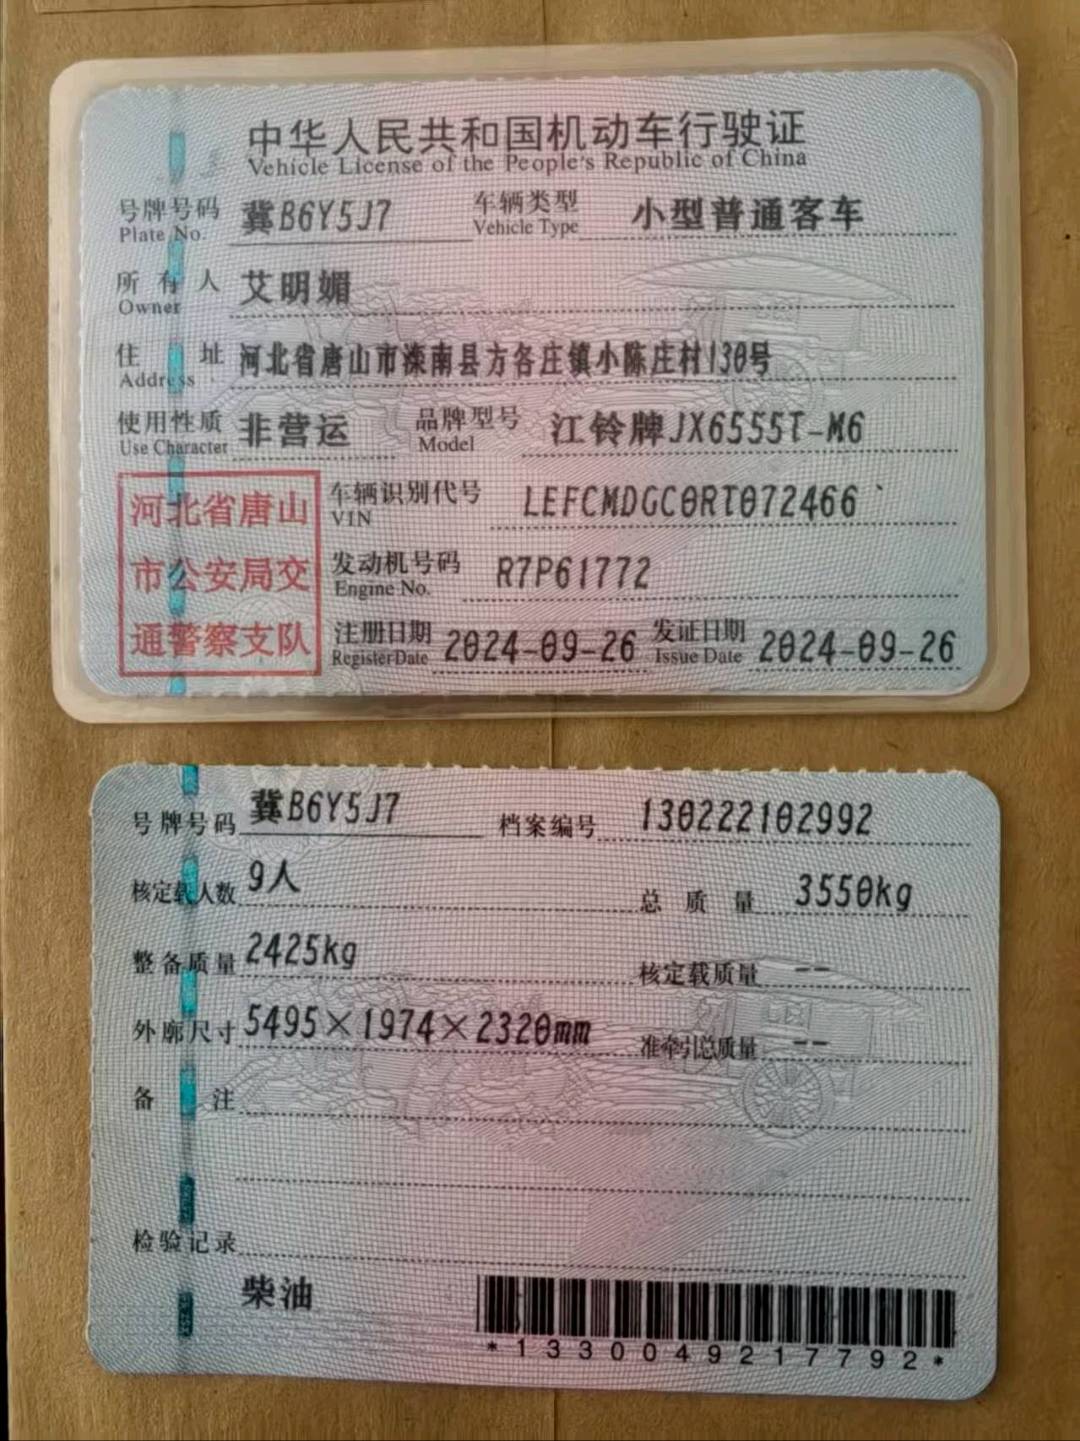 中华人民共和国机动车行驶证
Vehicle License of the People's Republic of China
号牌号码 冀B6Y5J7 车辆类型 小型普通客车
Plate No. Vehicle Type
所有人 艾明媚
Owner
住址 河北省唐山市滦南县方各庄镇小陈庄村130号
Address
使用性质 非营运 品牌型号 江铃牌JX6555T-M6
Use Character Model
河北省唐山
市公安局交
通警察支队
车辆识别代号 LEFCMDGC0RT072466
VIN
发动机号码 R7P61772
Engine No.
注册日期 2024-09-26 发证日期 2024-09-26
Register Date Issue Date
号牌号码 冀B6Y5J7 档案编号 130222102992
核定载人数 9人 总质量 3550kg
整备质量 2425kg 核定载质量 --
外廓尺寸 5495×1974×2320mm 准牵引总质量 --
备注
检验记录
柴油
*1330049217792*